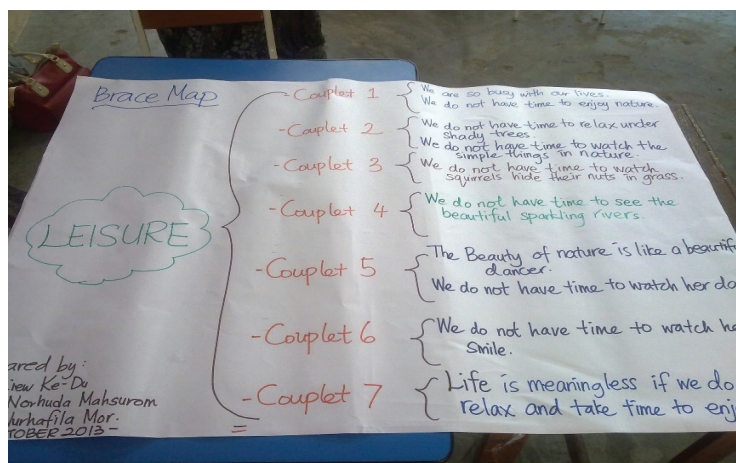 Brace Map
LEISURE
- Couplet 1
We are so busy with our lives.
We do not have time to enjoy nature.
- Couplet 2
We do not have time to relax under
shady trees.
We do not have time to watch the
simple things in nature.
- Couplet 3
We do not have time to watch
squirrels hide their nuts in grass.
- Couplet 4
We do not have time to see the
beautiful sparkling rivers.
- Couplet 5
The Beauty of nature is like a beautif
dancer.
We do not have time to watch her da
- Couplet 6
We do not have time to watch he
Smile.
- Couplet 7
Life is meaningless if we do
relax and take time to enj
ared by:
iew Ke-Du
Norhuda Mahsurom
urhafila Mor.
TOBER 2013 -